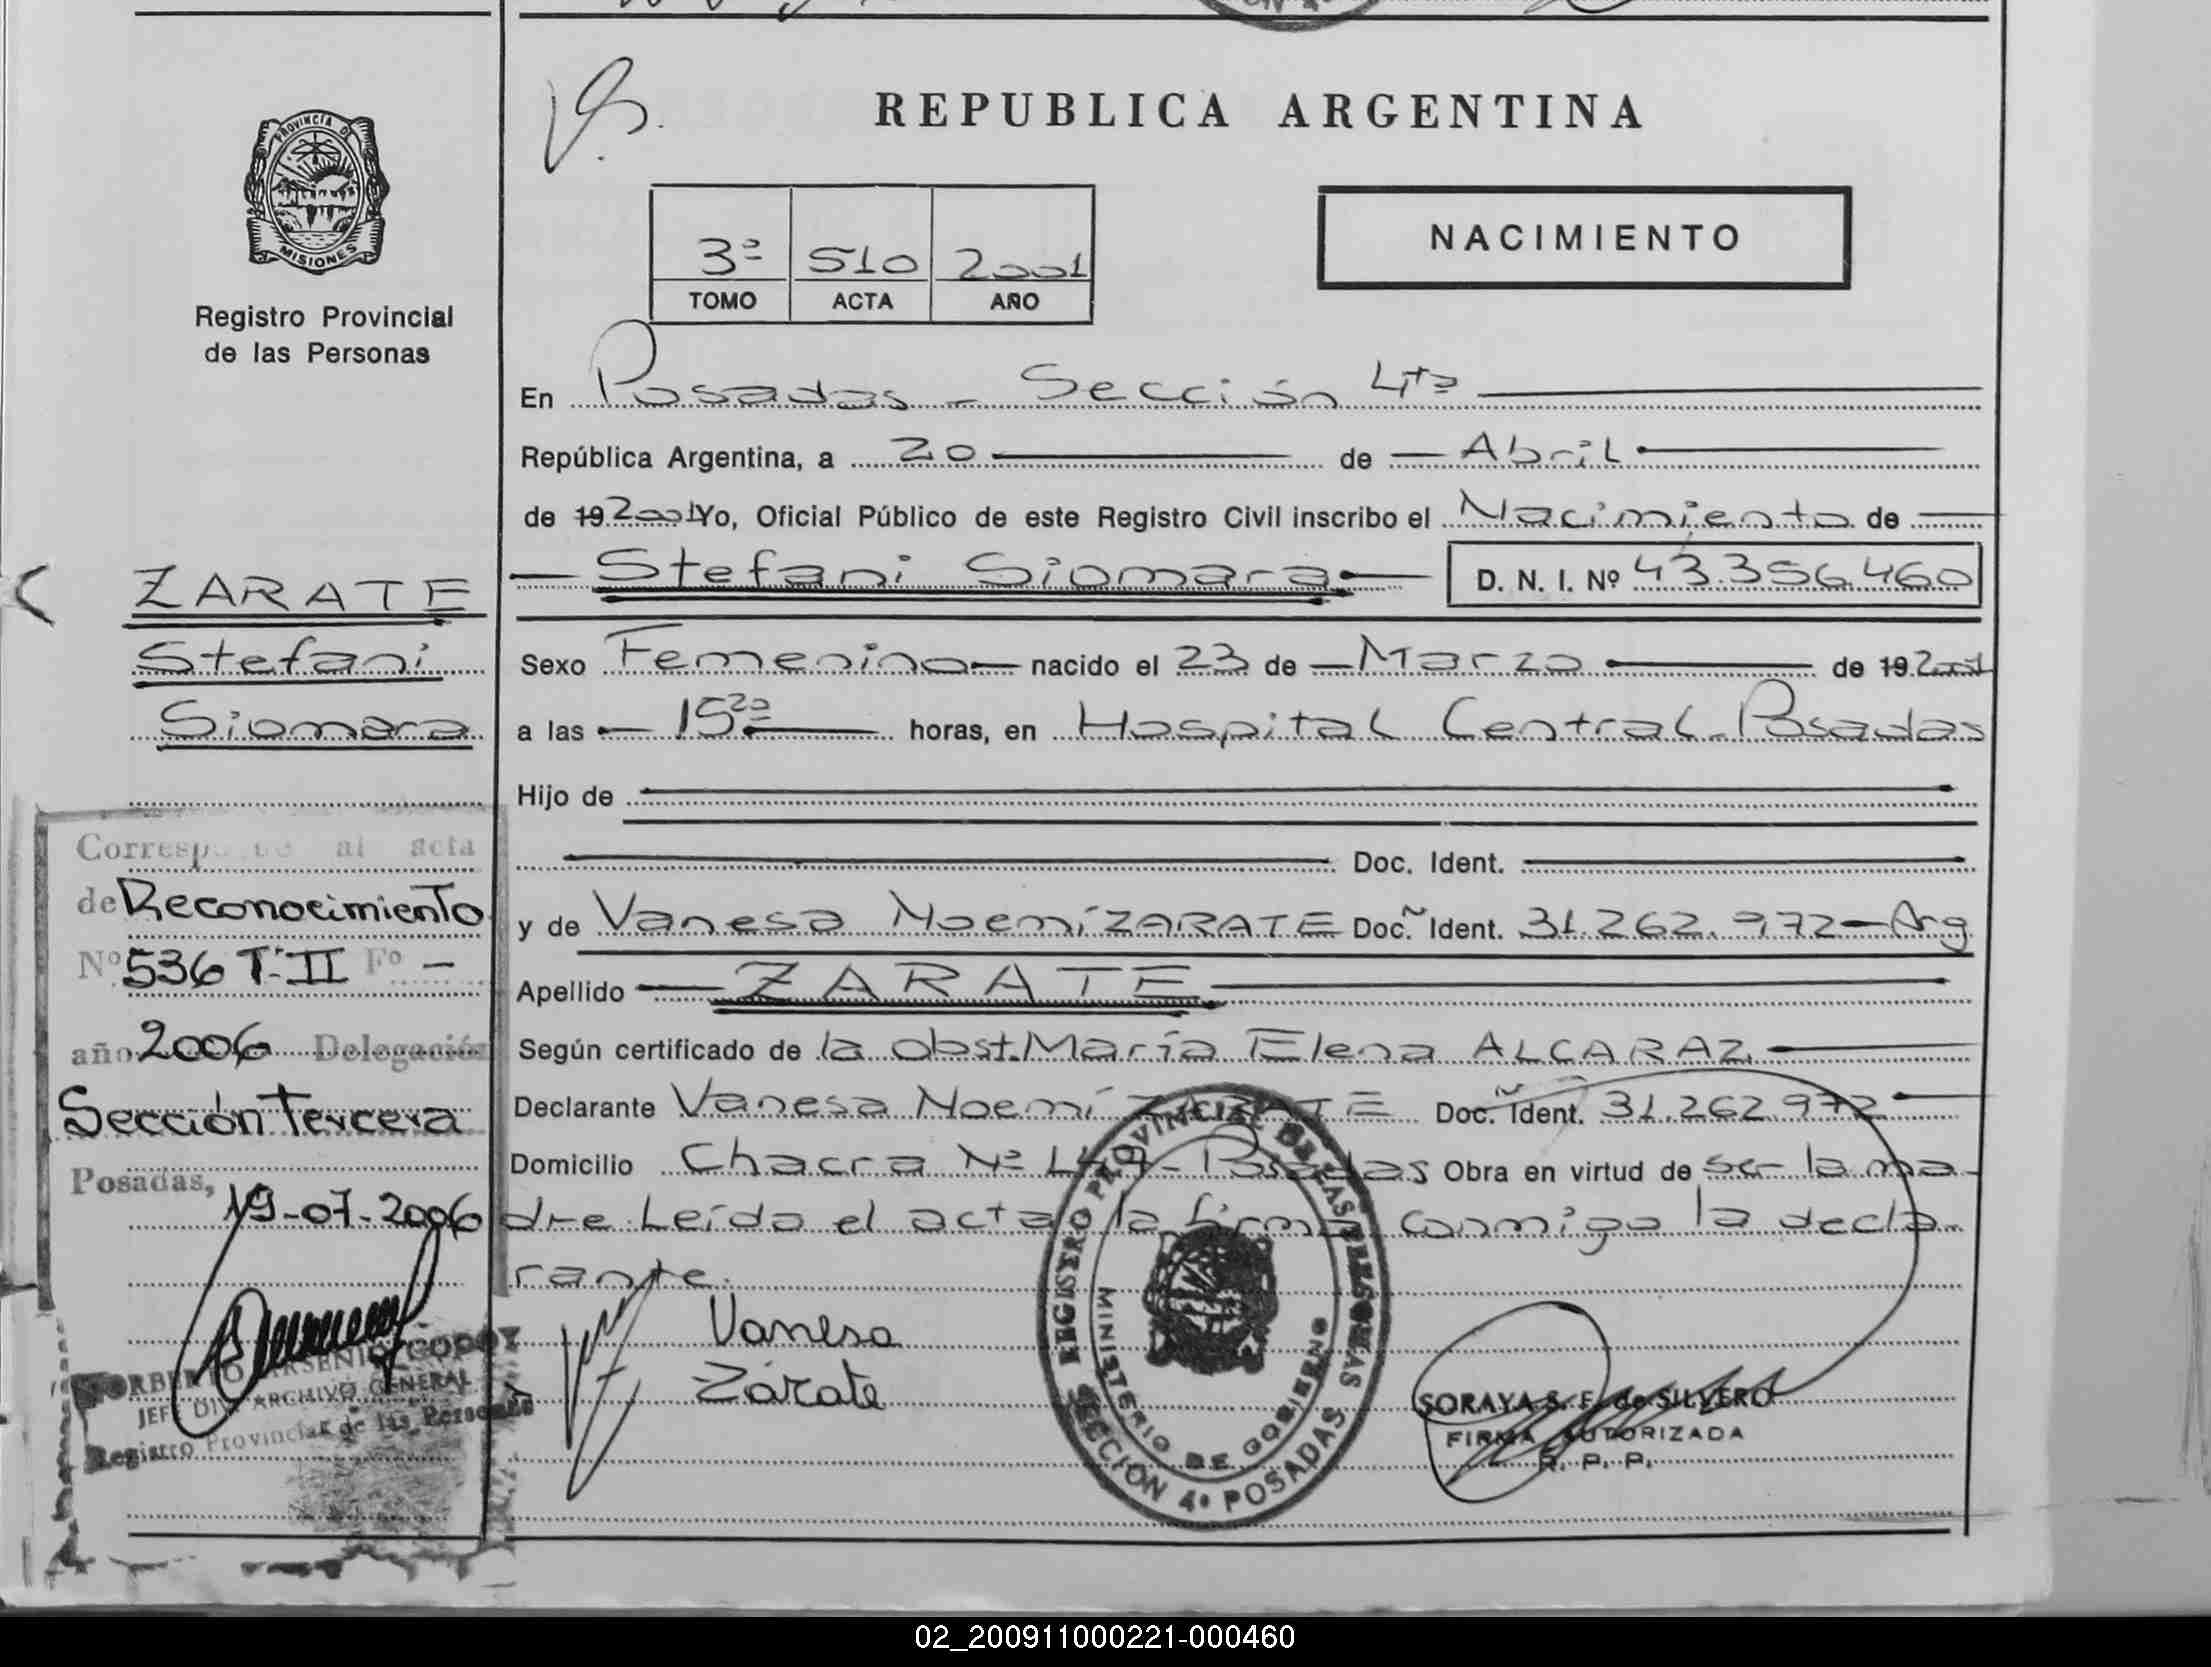 REPUBLICA ARGENTINA
PROVINCIA D
MISIONES
Registro Provincial
de las Personas
3ª 510 2001
TOMO ACTA AÑO
NACIMIENTO
En Posadas - Sección 4ta
República Argentina, a 20 de Abril
de 19 2001 Yo, Oficial Público de este Registro Civil inscribo el Nacimiento de
Stefani Siomara D. N. I. Nº 43.356.460
Sexo Femenino nacido el 23 de Marzo de 19 2001
a las 15 20 horas, en Hospital Central - Posadas
Hijo de
Doc. Ident.
y de Vanesa Noemí ZARATE Doc. Ident. 31.262.972 - Arg
Apellido ZARATE
Según certificado de la obst. María Elena ALCARAZ
Declarante Vanesa Noemí ZARATE Doc. Ident. 31.262.972
Domicilio Chacra Nº 149 - Posadas Obra en virtud de ser la ma-
dre. Leída el acta la firma conmigo la decla-
rante.
Vanesa
Zárate
REGISTRO PROVINCIAL DE LAS PERSONAS
MINISTERIO DE GOBIERNO
SECCIÓN 4ª POSADAS
SORAYA S. F. de SILVERO
FIRMA AUTORIZADA
R. P. P.
ZARATE
Stefani
Siomara
al acta
de Reconocimiento
Nº 536 T: II Fº -
año 2006 Delegación
Sección Tercera
Posadas,
19-07-2006
NORBERTO ARSENIO GODOY
JEFE DIV. ARCHIVO GENERAL
Registro Provincial de las Personas
02_200911000221-000460